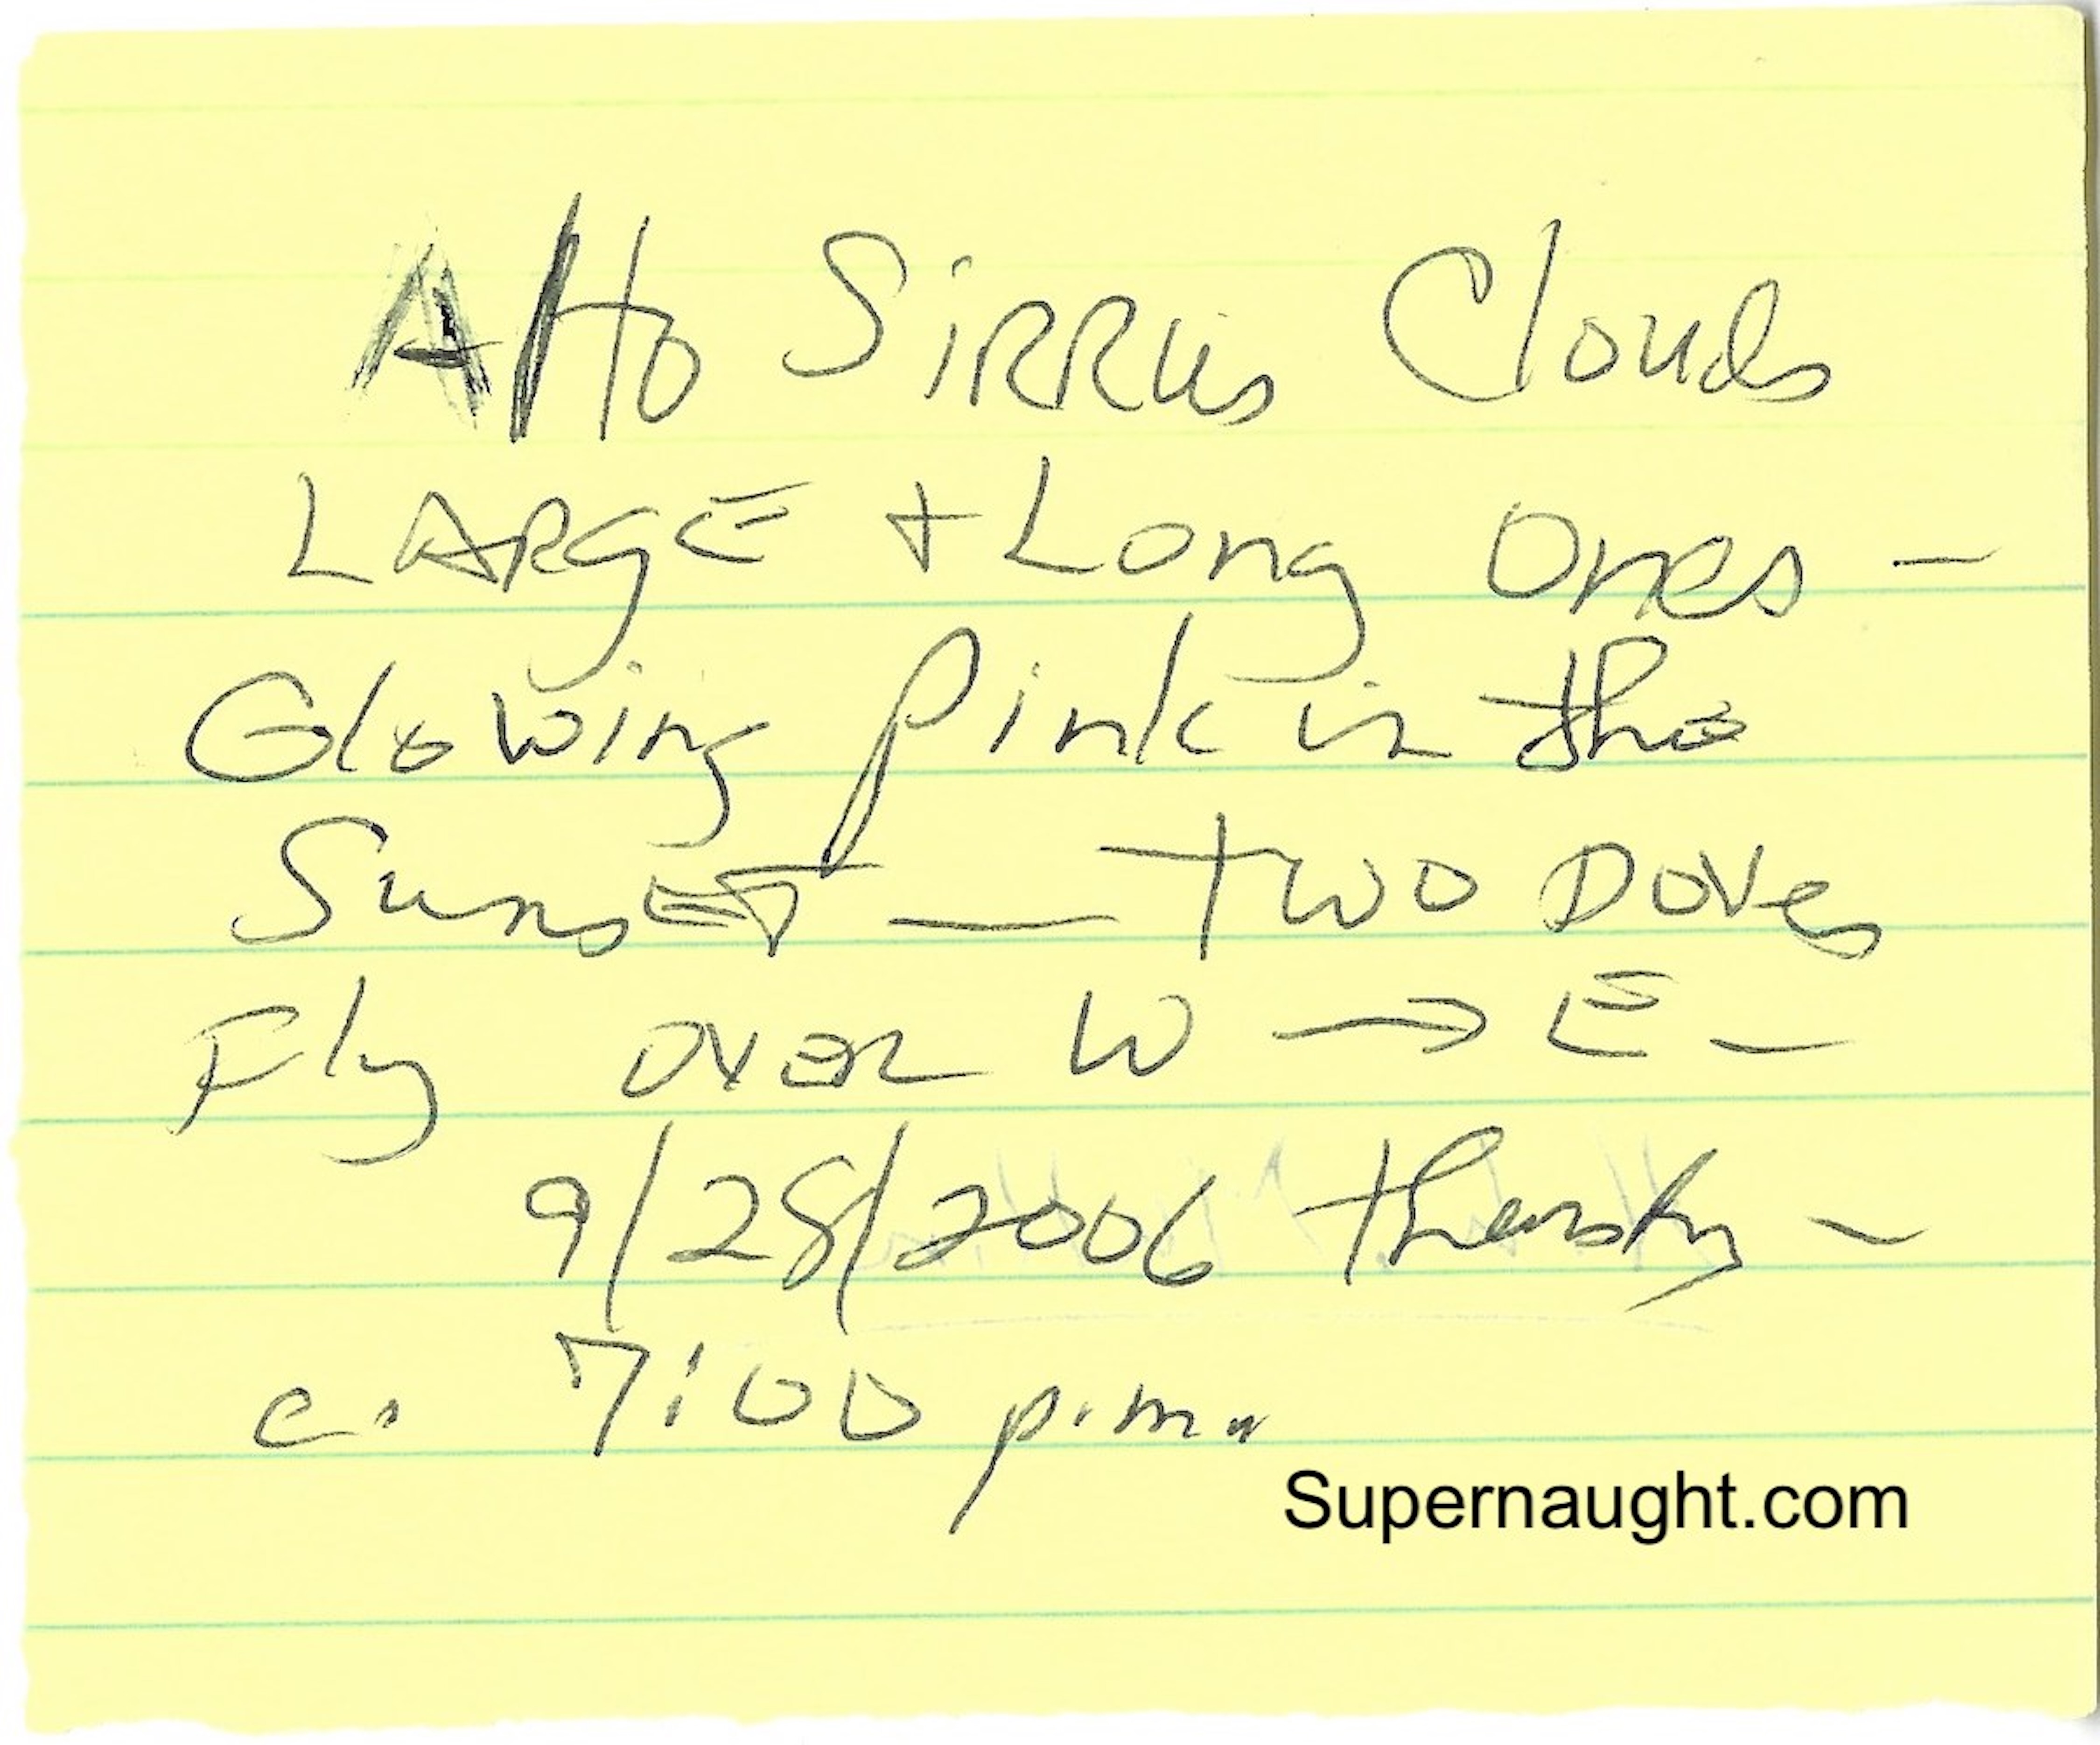 Alto Sirrus Clouds
LARGE + Long Ones –
Glowing Pink in the
SunsET — two Doves
Fly over W → E –
9/28/2006 thursdy –
c. 7:00 p.m.
Supernaught.com